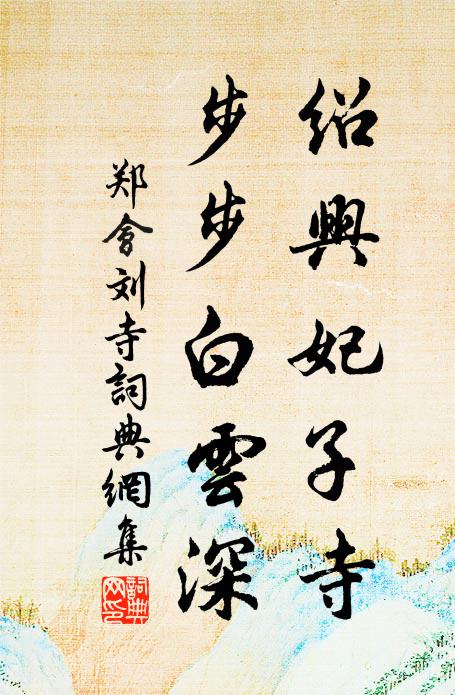 绍興妃子寺
步步白雲深
郑會刘寺詞典網集
詞典
网印